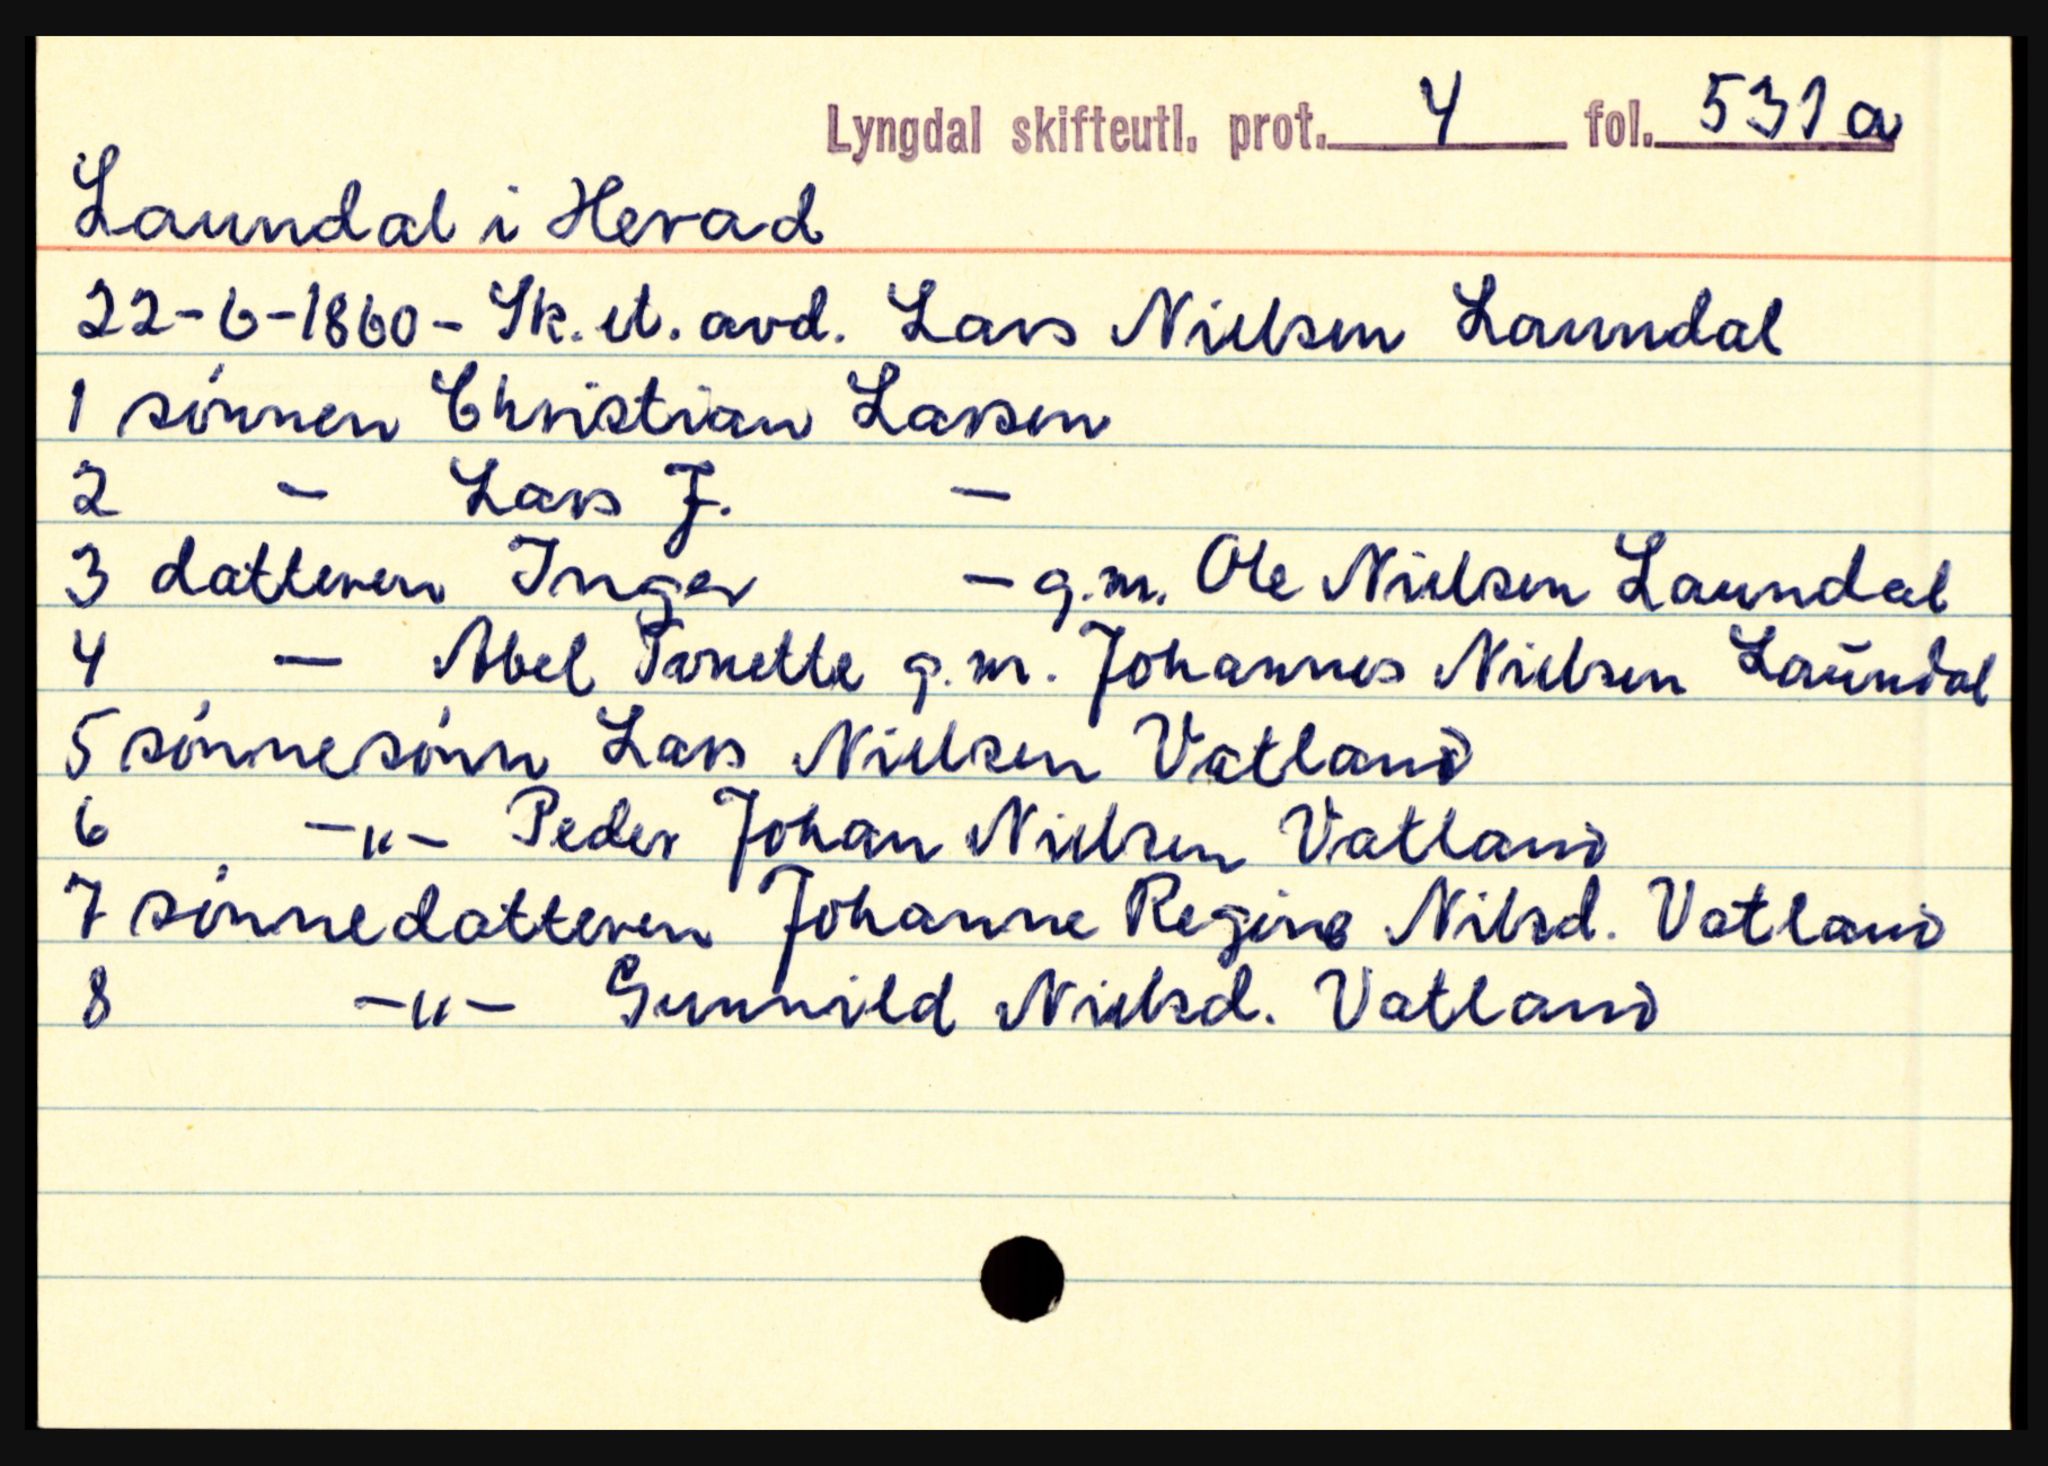 Lyngdal skifteutl. prot. 4 fol. 531a
Laundal i Herad
22-6-1860- Sk. et. avd. Lars Nielsen Laundal
1 sønnen Christian Larsen
2 - Lars J. -
3 datteren Inger - g.m. Ole Nielsen Laundal
4 - Abel Tonette g.m. Johannes Nielsen Laundal
5 sønnesønn Lars Nielsen Vatland
6 -"- Peder Johan Nielsen Vatland
7 sønnedatteren Johanne Regine Nilsd. Vatland
8 -"- Gunnild Nielsd. Vatland